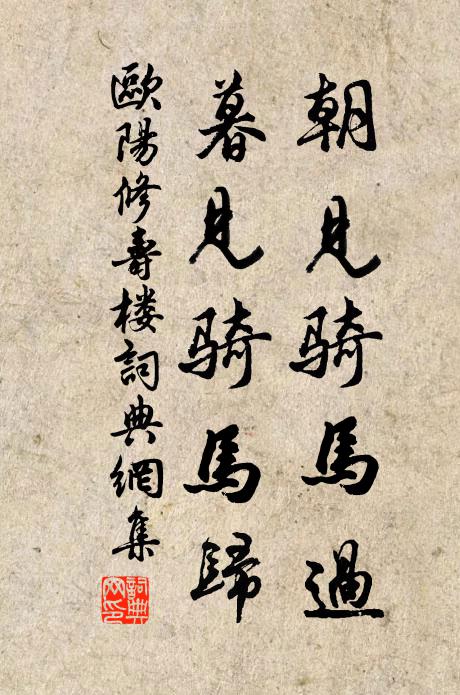 朝見騎馬過
暮見騎馬歸
歐陽修壽楼詞典網集
詞典網印